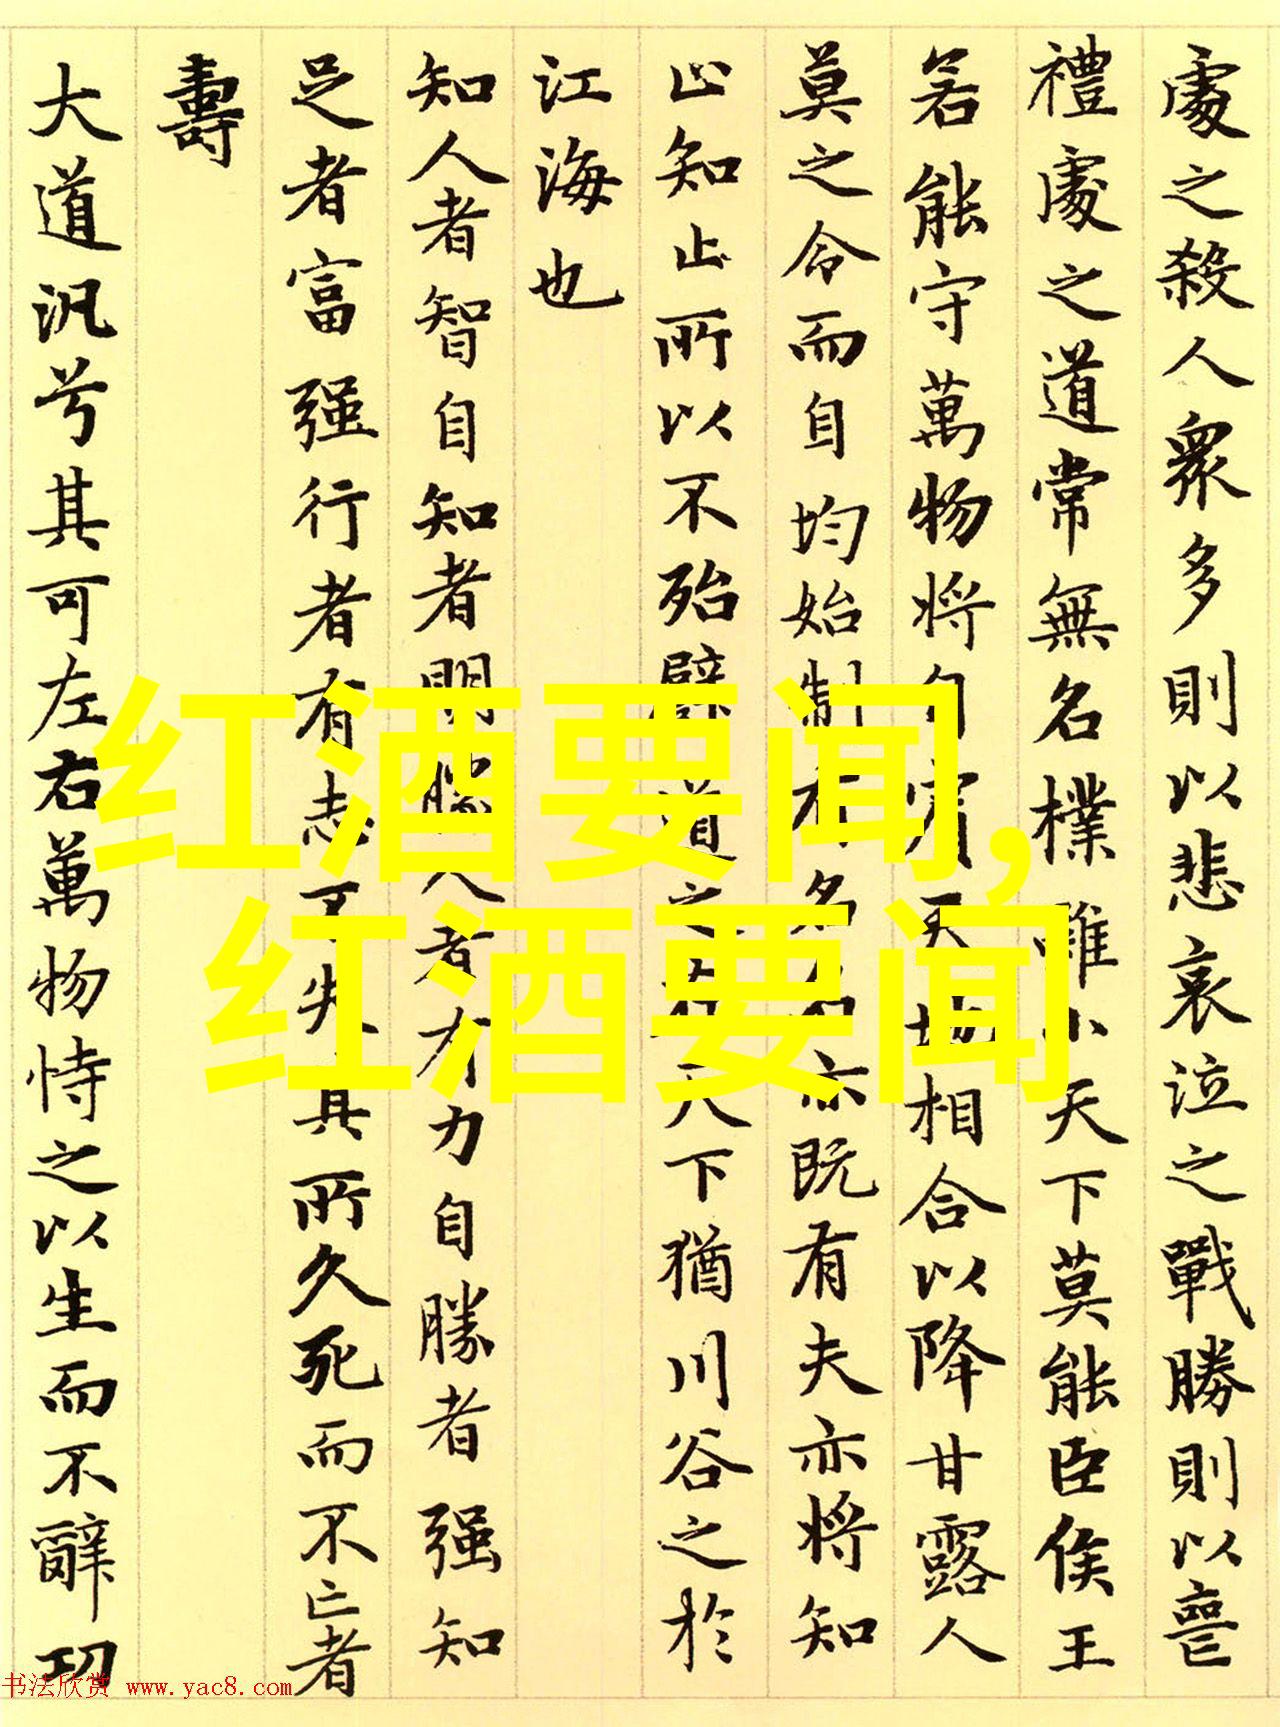 處之殺人衆多則以悲哀泣之戰勝則以喪
禮處之道常無名樸雖小天下莫能臣侯王
若能守萬物將自賓天地相合以降甘露人
莫之令而自均始制有名名亦既有夫亦將知
止知止所以不殆譬道之在天下猶川谷之於
江海也
知人者智自知者明勝人者有力自勝者强知
足者富强行者有志不失其所久死而不亡者
壽
大道汎兮其可左右萬物恃之以生而不辭功
红酒要闻,
红酒要闻
书法欣赏 www.yac8.com